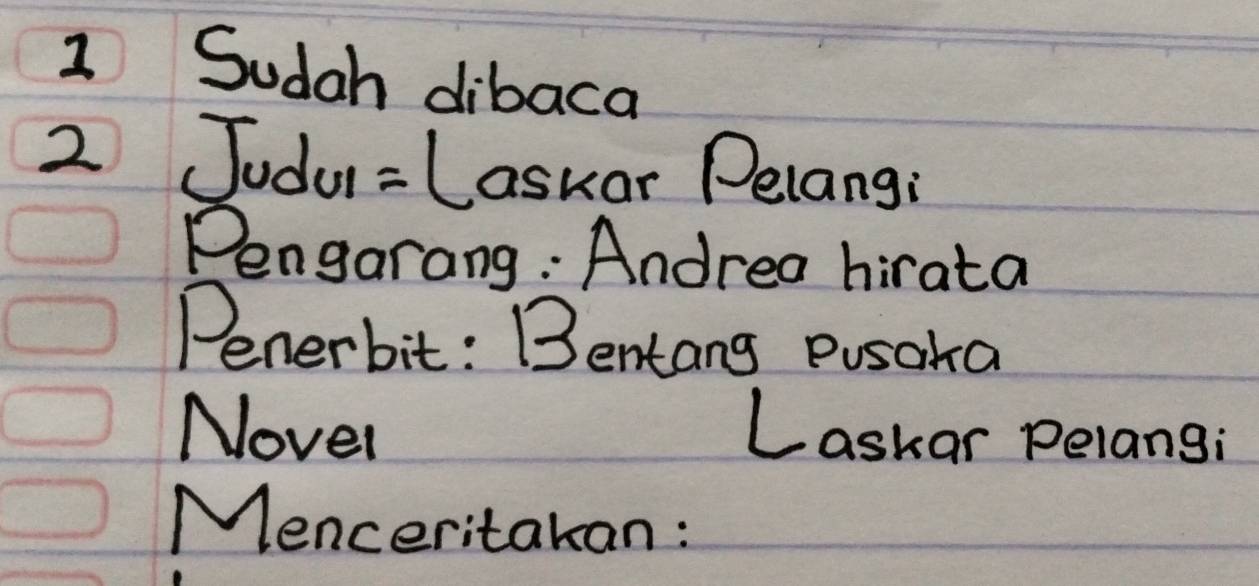 1 Sudah dibaca
2 Judul = Laskar Pelangi
Pengarang : Andrea hirata
Penerbit : Bentang Pusaka
Novel Laskar Pelangi
Menceritakan :